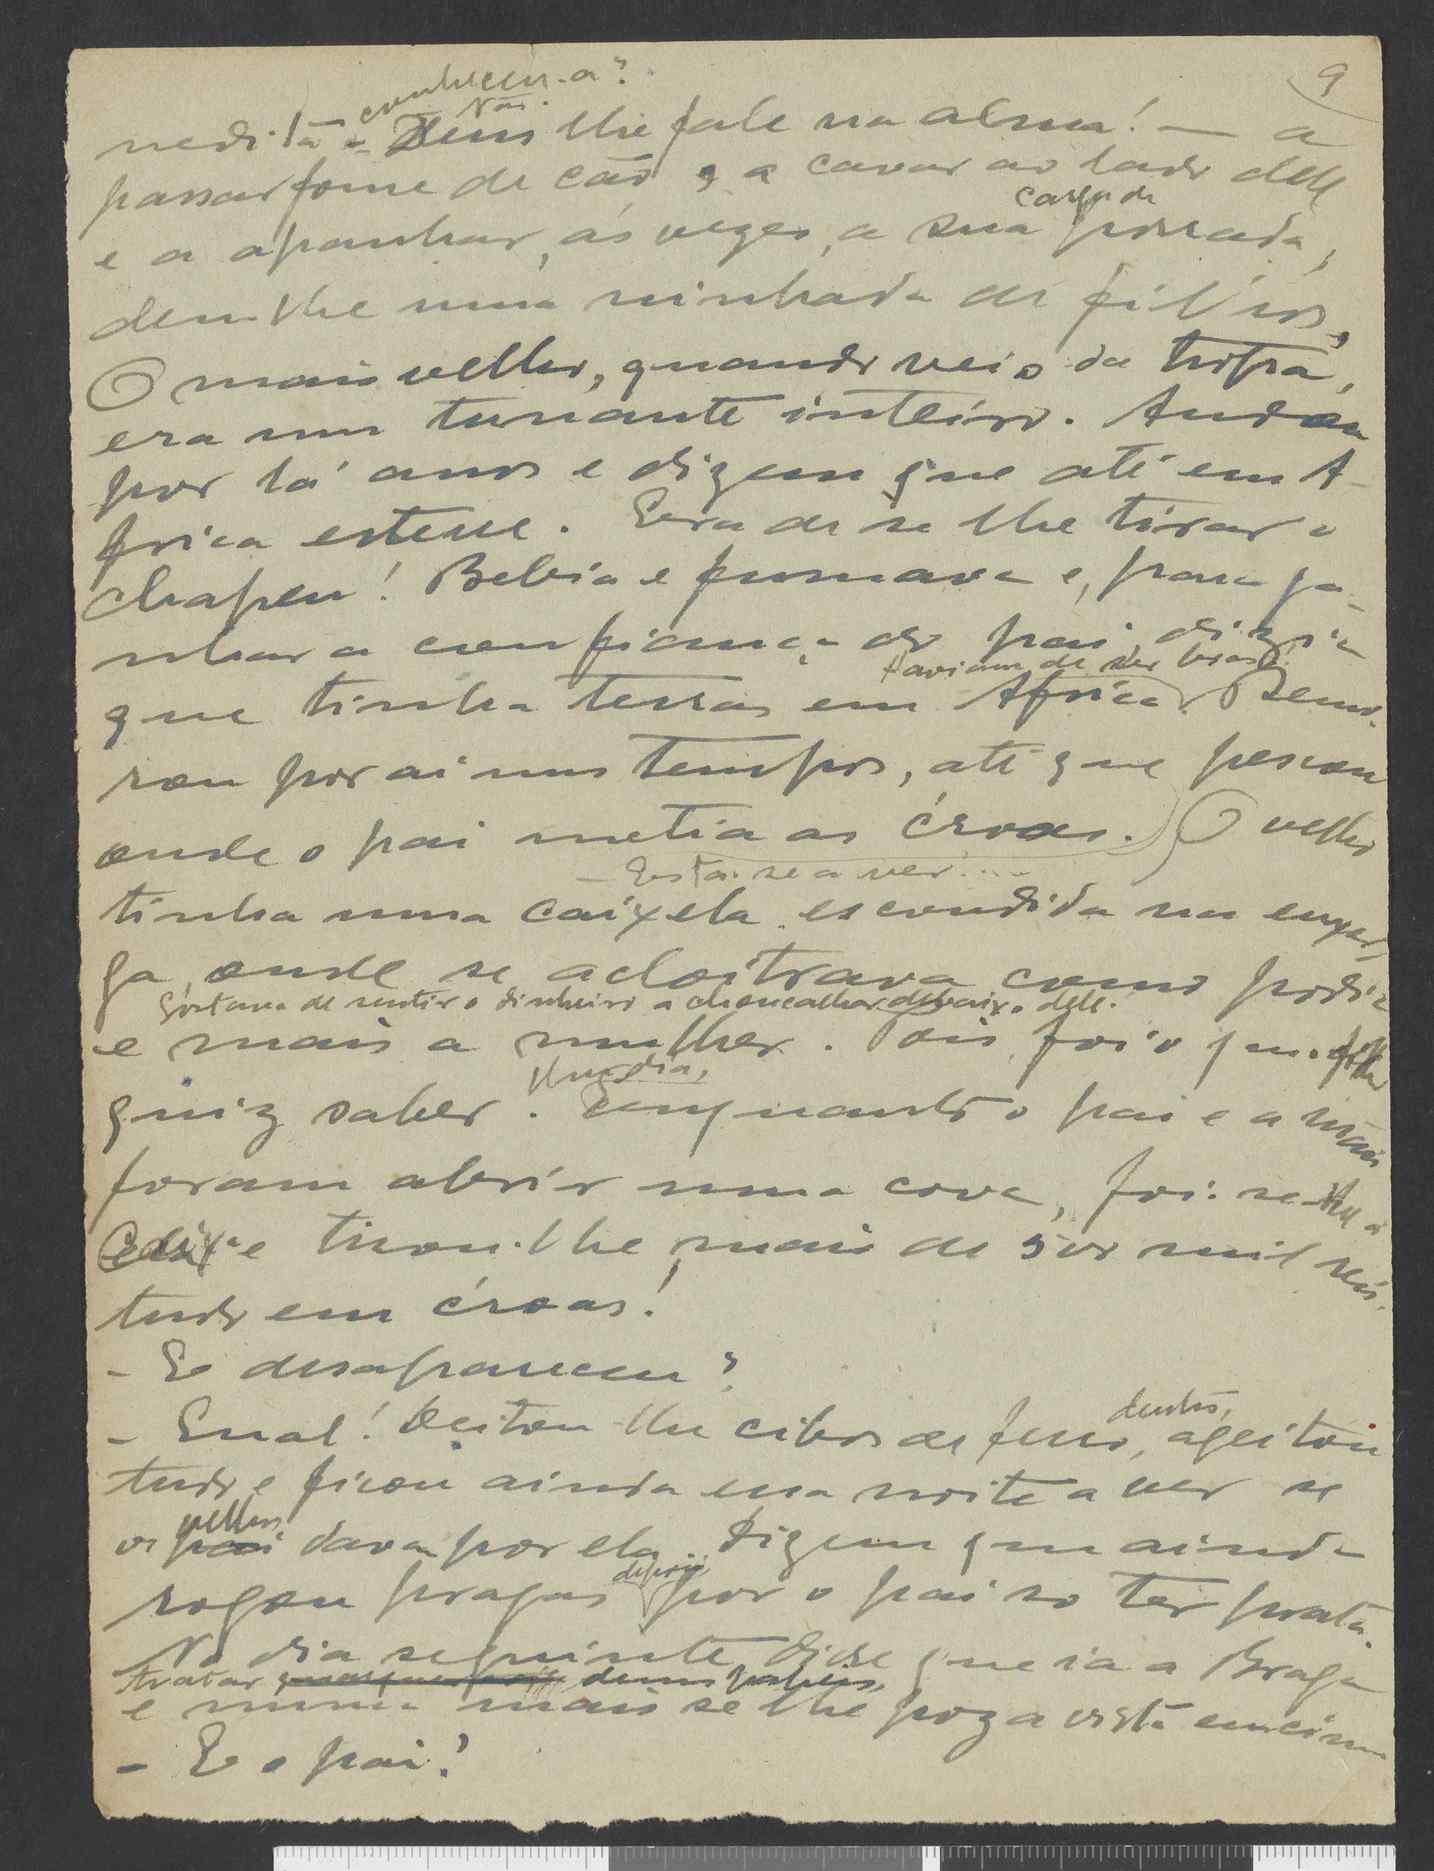 9
conheceu-a?
Não.
nedita - Deus lhe fale na alma! - a
passar fome de cão, e a cavar ao lado dele
carga de
e a apanhar, ás vezes, a sua porrada,
deu-lhe uma ninhada de filhos,
O mais velho, quando veio da tropa,
era um tunante inteiro. Andou
por lá anos e dizem que até em A-
frica esteve. Era de se lhe tirar o
chapeu! Bebia e fumava e, para ga-
nhar a confiança do pai, dizia
Haviam de ser boas!
que tinha terras em Africa. Demo-
rou por ai uns tempos, até que pescou
onde o pai metia as c'roas. O velho
- Está-se a ver....
tinha uma caixela escondida na enxer-
ga, onde se adostrava como podia
Gostava de sentir o dinheiro a chocalhar debaixo dele.
e mais a mulher. Pois foi o que o filho
quiz saber. Enquanto o pai e a mãe
Um dia,
foram abrir uma cova, foi-se-lhe á
caixa e tirou-lhe mais de 500 mil reis,
tudo em c'roas!
- E desapareceu?
dentro,
- Qual! Deitou-lhe cibos de ferro, ageitou
tudo e ficou ainda essa noite a ver se
velhos
os pai dava por ela. Dizem que ainda
depois
rogou pragas por o pai só ter prata.
No dia seguinte, disse que ia a Braga
tratar duns papeis,
e nunca mais se lhe poz a vista encima
- E o pai?